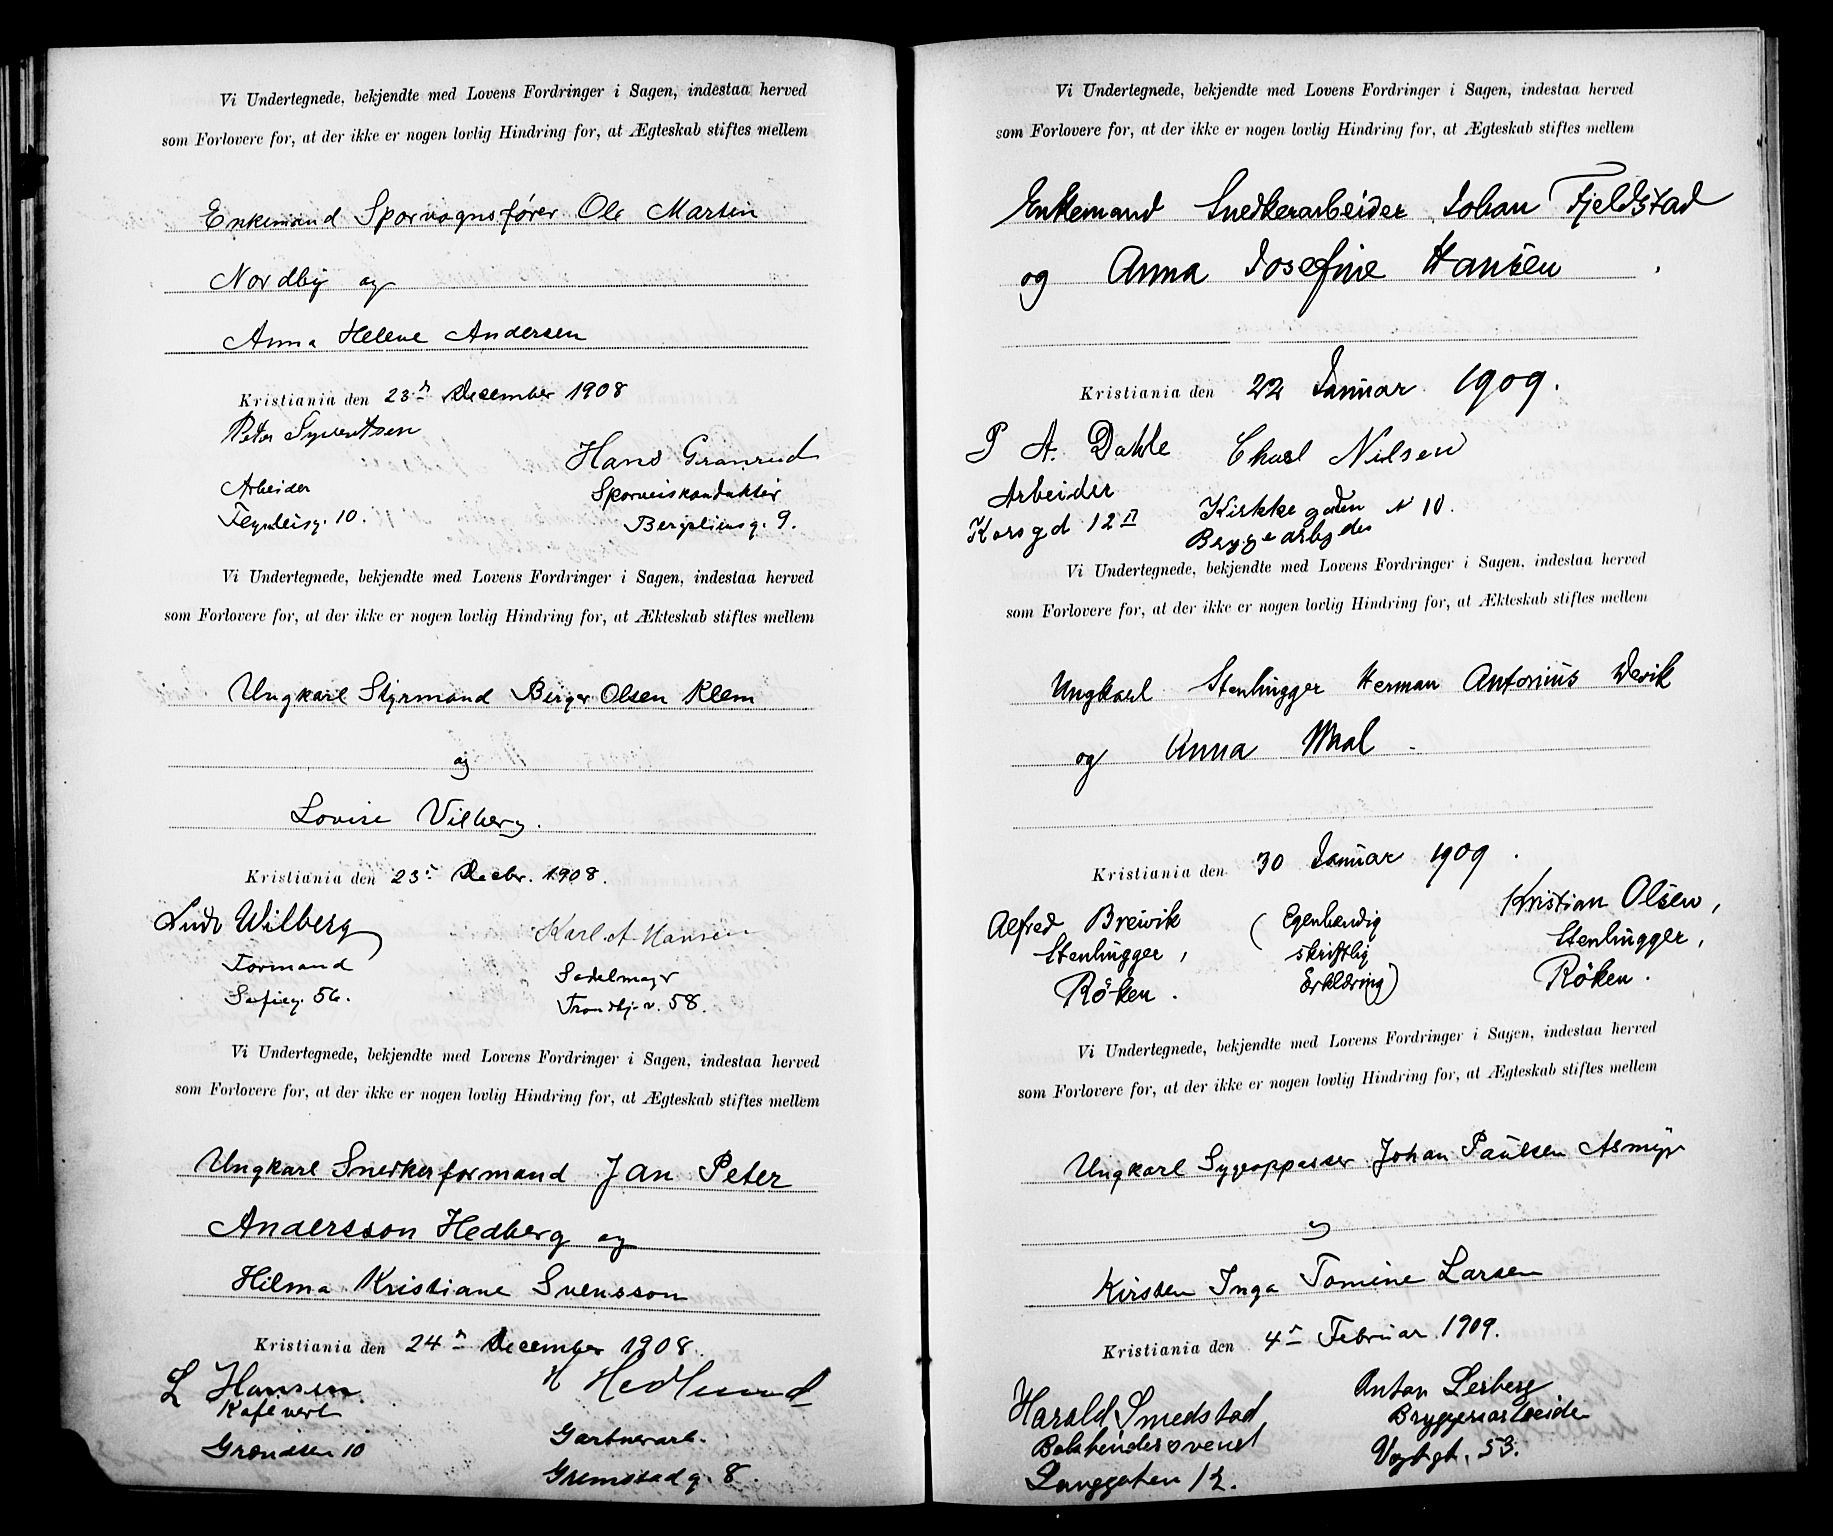 Vi Undertegnede, bekjendte med Lovens Fordringer i Sagen, indestaa herved
som Forlovere for, at der ikke er nogen lovlig Hindring for, at Ægteskab stiftes mellem
Enkemand Sporvognsfører Ole Martin
Nordby og
Anna Helene Andersen
Kristiania den 23de December 1908
Peter Syvertsen
Hans Granrud
Arbeider
Sporveiskonduktør
10.
Bergsliensg. 9.
Vi Undertegnede, bekjendte med Lovens Fordringer i Sagen, indestaa herved
som Forlovere for, at der ikke er nogen lovlig Hindring for, at Ækteskab stiftes mellem
Ungkarl Styrmand Birger Olsen Klem
og
Lovise Vilberg.
Kristiania den 23de Decbr. 1908.
Ludv Wilberg
Karl A Hansen
Formand
Sadelmagr
Sofieg. 56.
Trondhj.v. 58.
Vi Undertegnede, bekjendte med Lovens Fordringer i Sagen, indestaa herved
som Forlovere for, at der ikke er nogen lovlig Hindring for, at Ægteskab stiftes mellem
Ungkarl Snedkerformand Jan Peter
Andersson Hedberg og
Hilma Kristiane Svensson
Kristiania den 24de December 1908.
L Hansen
H Hedlund
Kafévert
Gartnerarb.
Grændsen 10
Grimstadg. 8.
Vi Undertegnede, bekjendte med Lovens Fordringer i Sagen, indestaa herved
som Forlovere for, at der ikke er nogen lovlig Hindring for, at Ægteskab stiftes mellem
Enkemand Snedkerarbeider Johan Fjeldstad
og Anna Josefine Hansen.
Kristiania den 22 Januar 1909.
P A. Dahle
Charl Nilsen
Arbeider
Kirkkegaden N 10.
Korsgd 12 II
Bryggearbejder
Vi Undertegnede, bekjendte med Lovens Fordringer i Sagen, indestaa herved
som Forlovere for, at der ikke er nogen lovlig Hindring for, at Ækteskab stiftes mellem
Ungkarl Stenhugger Herman Antonius Devik
og Anna Moal.
Kristiania den 30 Januar 1909.
Alfred Breivik
(Egenhændig
Kristian Olsen,
Stenhugger,
skriftlig
Stenhugger,
Röken.
Erklæring)
Röken.
Vi Undertegnede, bekjendte med Lovens Fordringer i Sagen, indestaa herved
som Forlovere for, at der ikke er nogen lovlig Hindring for, at Ægteskab stiftes mellem
Ungkarl Sygeopperser Johan Paulsen Asmyr
og
Kirsten Inga Tomine Larsen
Kristiania den 4de Februar 1909.
Harald Smedstad
Anton Lerberg
Bokbindersvend
Bryggeriarbeider
Langgaten 12.
Vogtgt. 53.